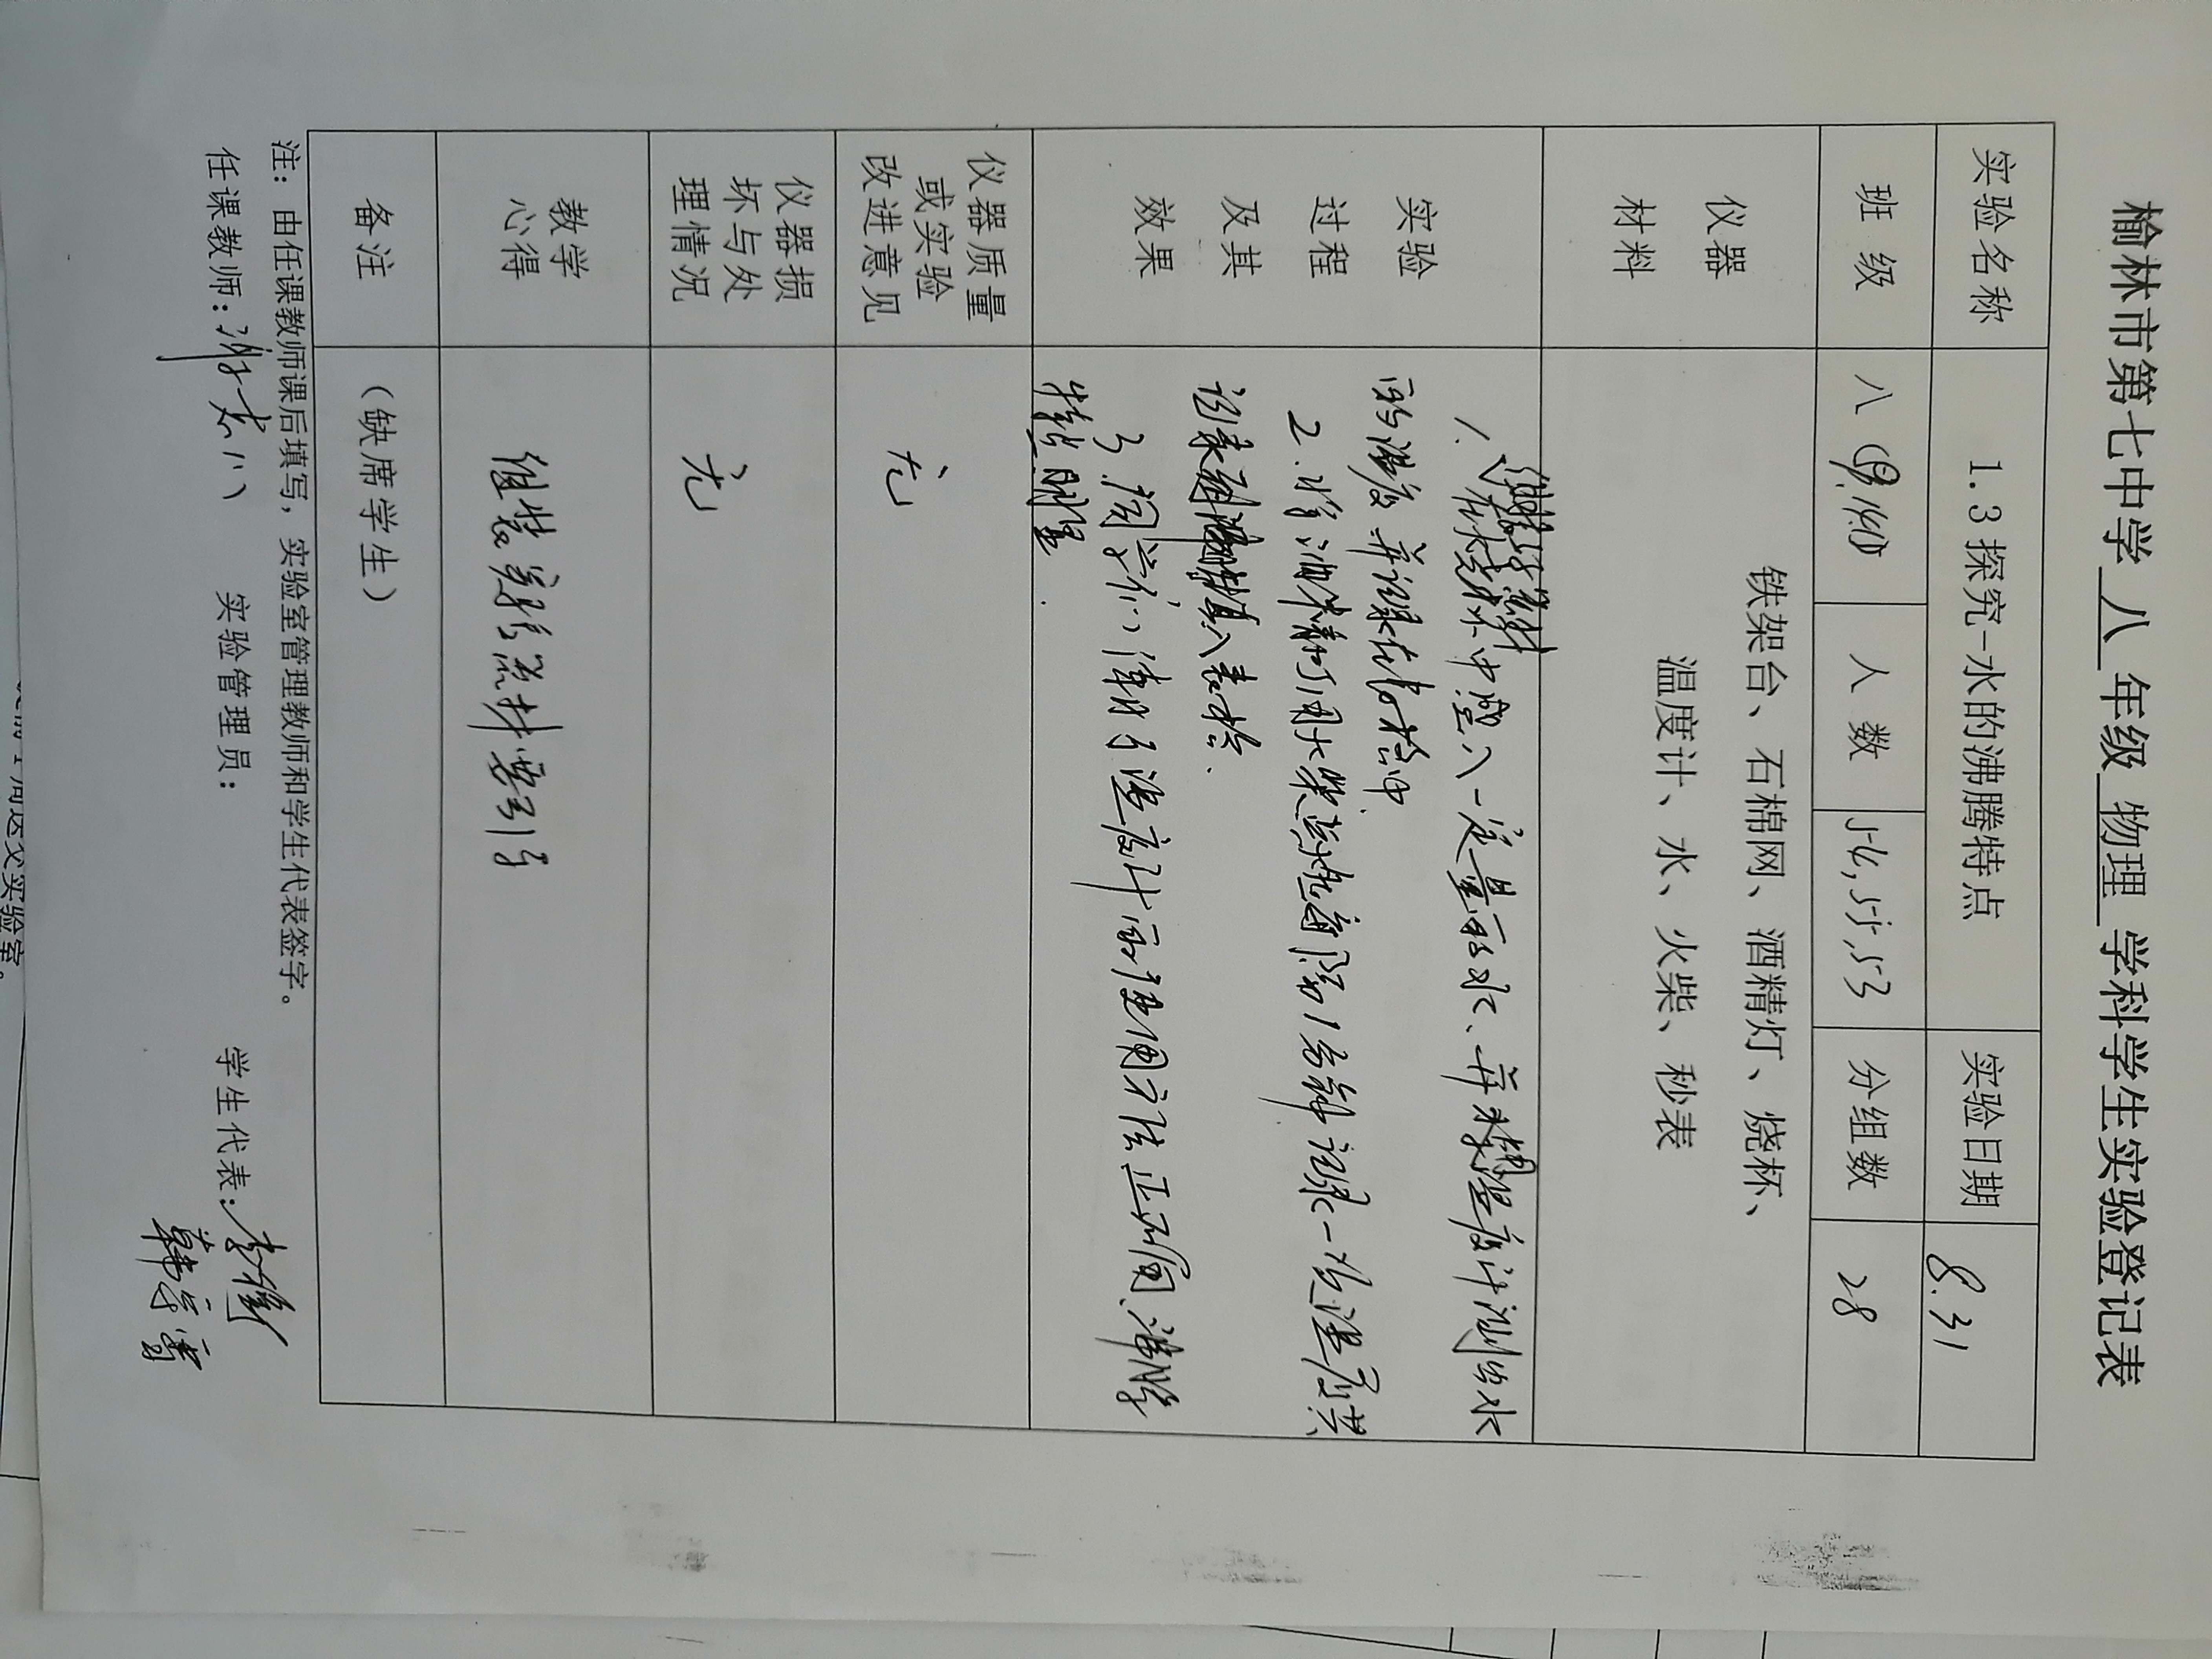 榆林市第七中学 八 年级 物理 学科学生实验登记表
实验名称 1.3探究-水的沸腾特点 实验日期 8.31
班 级 八 人 数 54,55,53 分组数 28
仪器
材料
铁架台、石棉网、酒精灯、烧杯、
温度计、水、火柴、秒表
实验
过程
及其
效果
1. 组装好器材
在烧杯中盛入一定量的水、并用温度计测出水
的温度并记录在表格中
2.将酒精灯用火柴点燃,每隔1分钟记录一次温度,并
记录到填入表格.
3.同学们清楚了温度计的使用方法正确,沸腾
特点明显.
仪器质量
或实验
改进意见
无
仪器损
坏与处
理情况
无
教学
心得
组装器材要引导
备注
(缺席学生)
注:由任课教师课后填写,实验室管理教师和学生代表签字。
任课教师: 实验管理员: 学生代表: